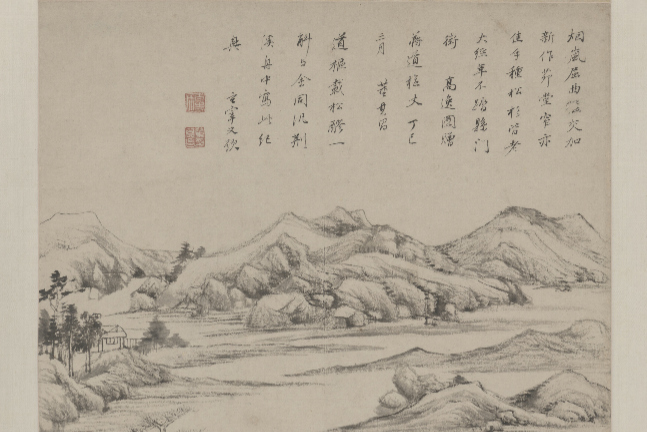 烟嵐屈曲交加
新作茆堂窄亦
佳手種松杉皆老
大經年不踏縣門
街 高逸圖贈
蔣道樞丈 丁巳
三月 董其昌
道樞載松醪一
斛與余同汎荊
溪舟中寫此紀
興 玄宰又欵